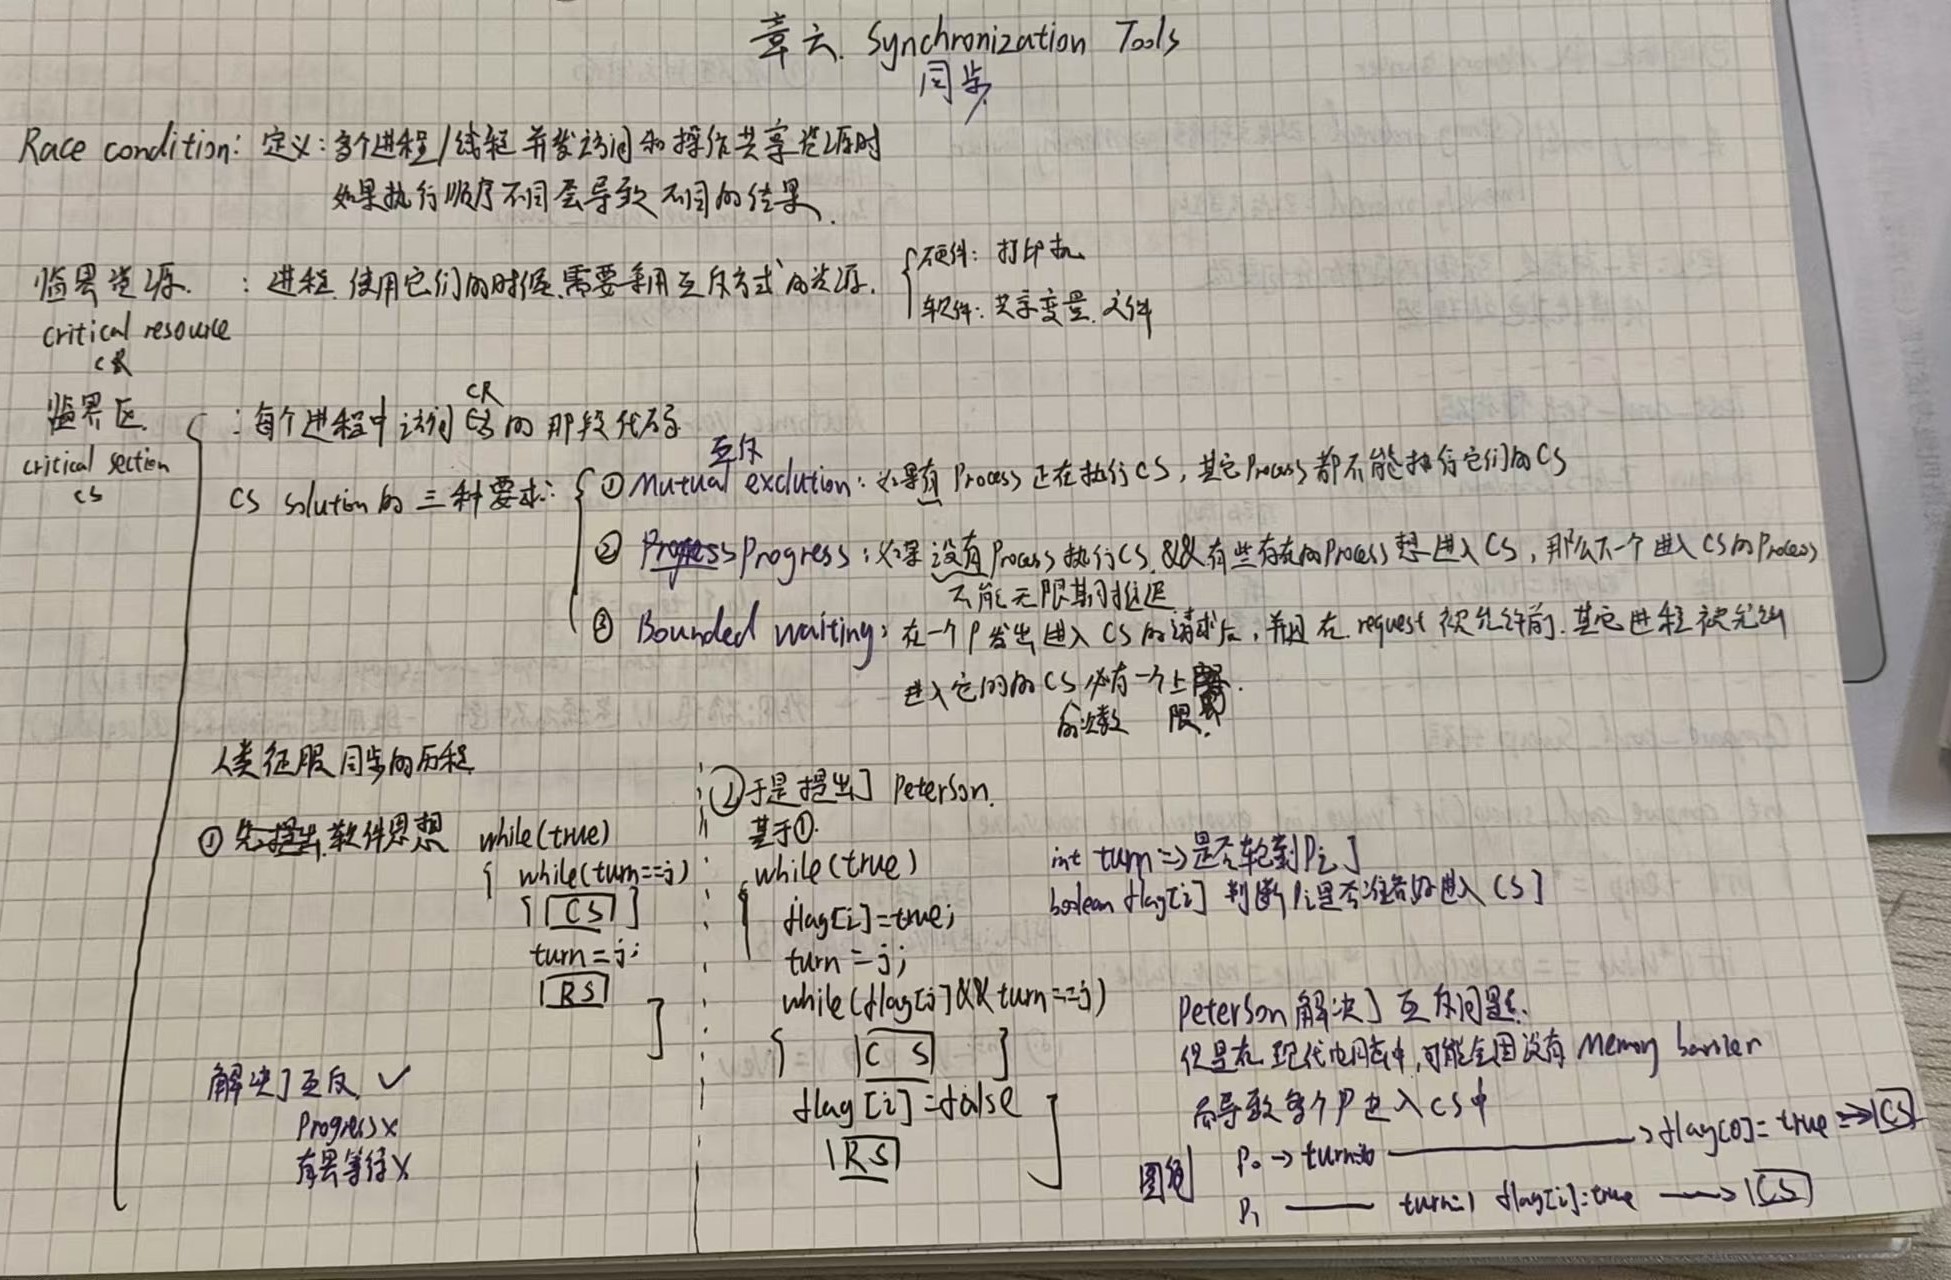 章六. Synchronization Tools
同步
Race condition: 定义: 多个进程/线程 并发访问和操作共享资源时
如果执行顺序不同会导致 不同的结果.
临界资源. : 进程 使用它们的时候 需要采用互斥方式的资源. { 硬件: 打印机
软件: 共享变量. 文件
critical resource
CR
临界区. : 每个进程中访问 CR 的 那段代码
critical section
CS
CS solution的三种要求: { ① Mutual exclution: 如果有 Process 正在执行CS, 其它Process 都不能执行它们的CS
互斥
② Progress: 如果没有Process执行CS && 有些存在的Process想进入CS, 那么下一个进入CS的Process
不能无限期推迟
③ Bounded waiting: 在一个P发出进入CS的请求后, 并且在 request 被允许前. 其它进程被允许
进入它们的CS必有一个上限.
的次数
人类征服同步的历程
① 先提出软件思想 while(true)
{ while(turn==j)
{ [CS] }
turn=j;
[RS] }
解决了互斥 ✓
Progress ×
有界等待 ×
② 于是提出了 Peterson.
基于①.
while(true)
{ flag[i]=true;
turn=j;
while(flag[j]&&turn==j)
{ [CS] }
flag[i]=false
[RS] }
int turn => 是否轮到Pi了
boolean flag[i] 判断Pi是否准备好进入CS了
Peterson解决了互斥问题.
但是在现代电脑中, 可能会因没有Memory barrier
而导致多个P进入CS中
P0 → turn= → flag[0]=true => [CS]
P1 —— turn= flag[1]=true → [CS]